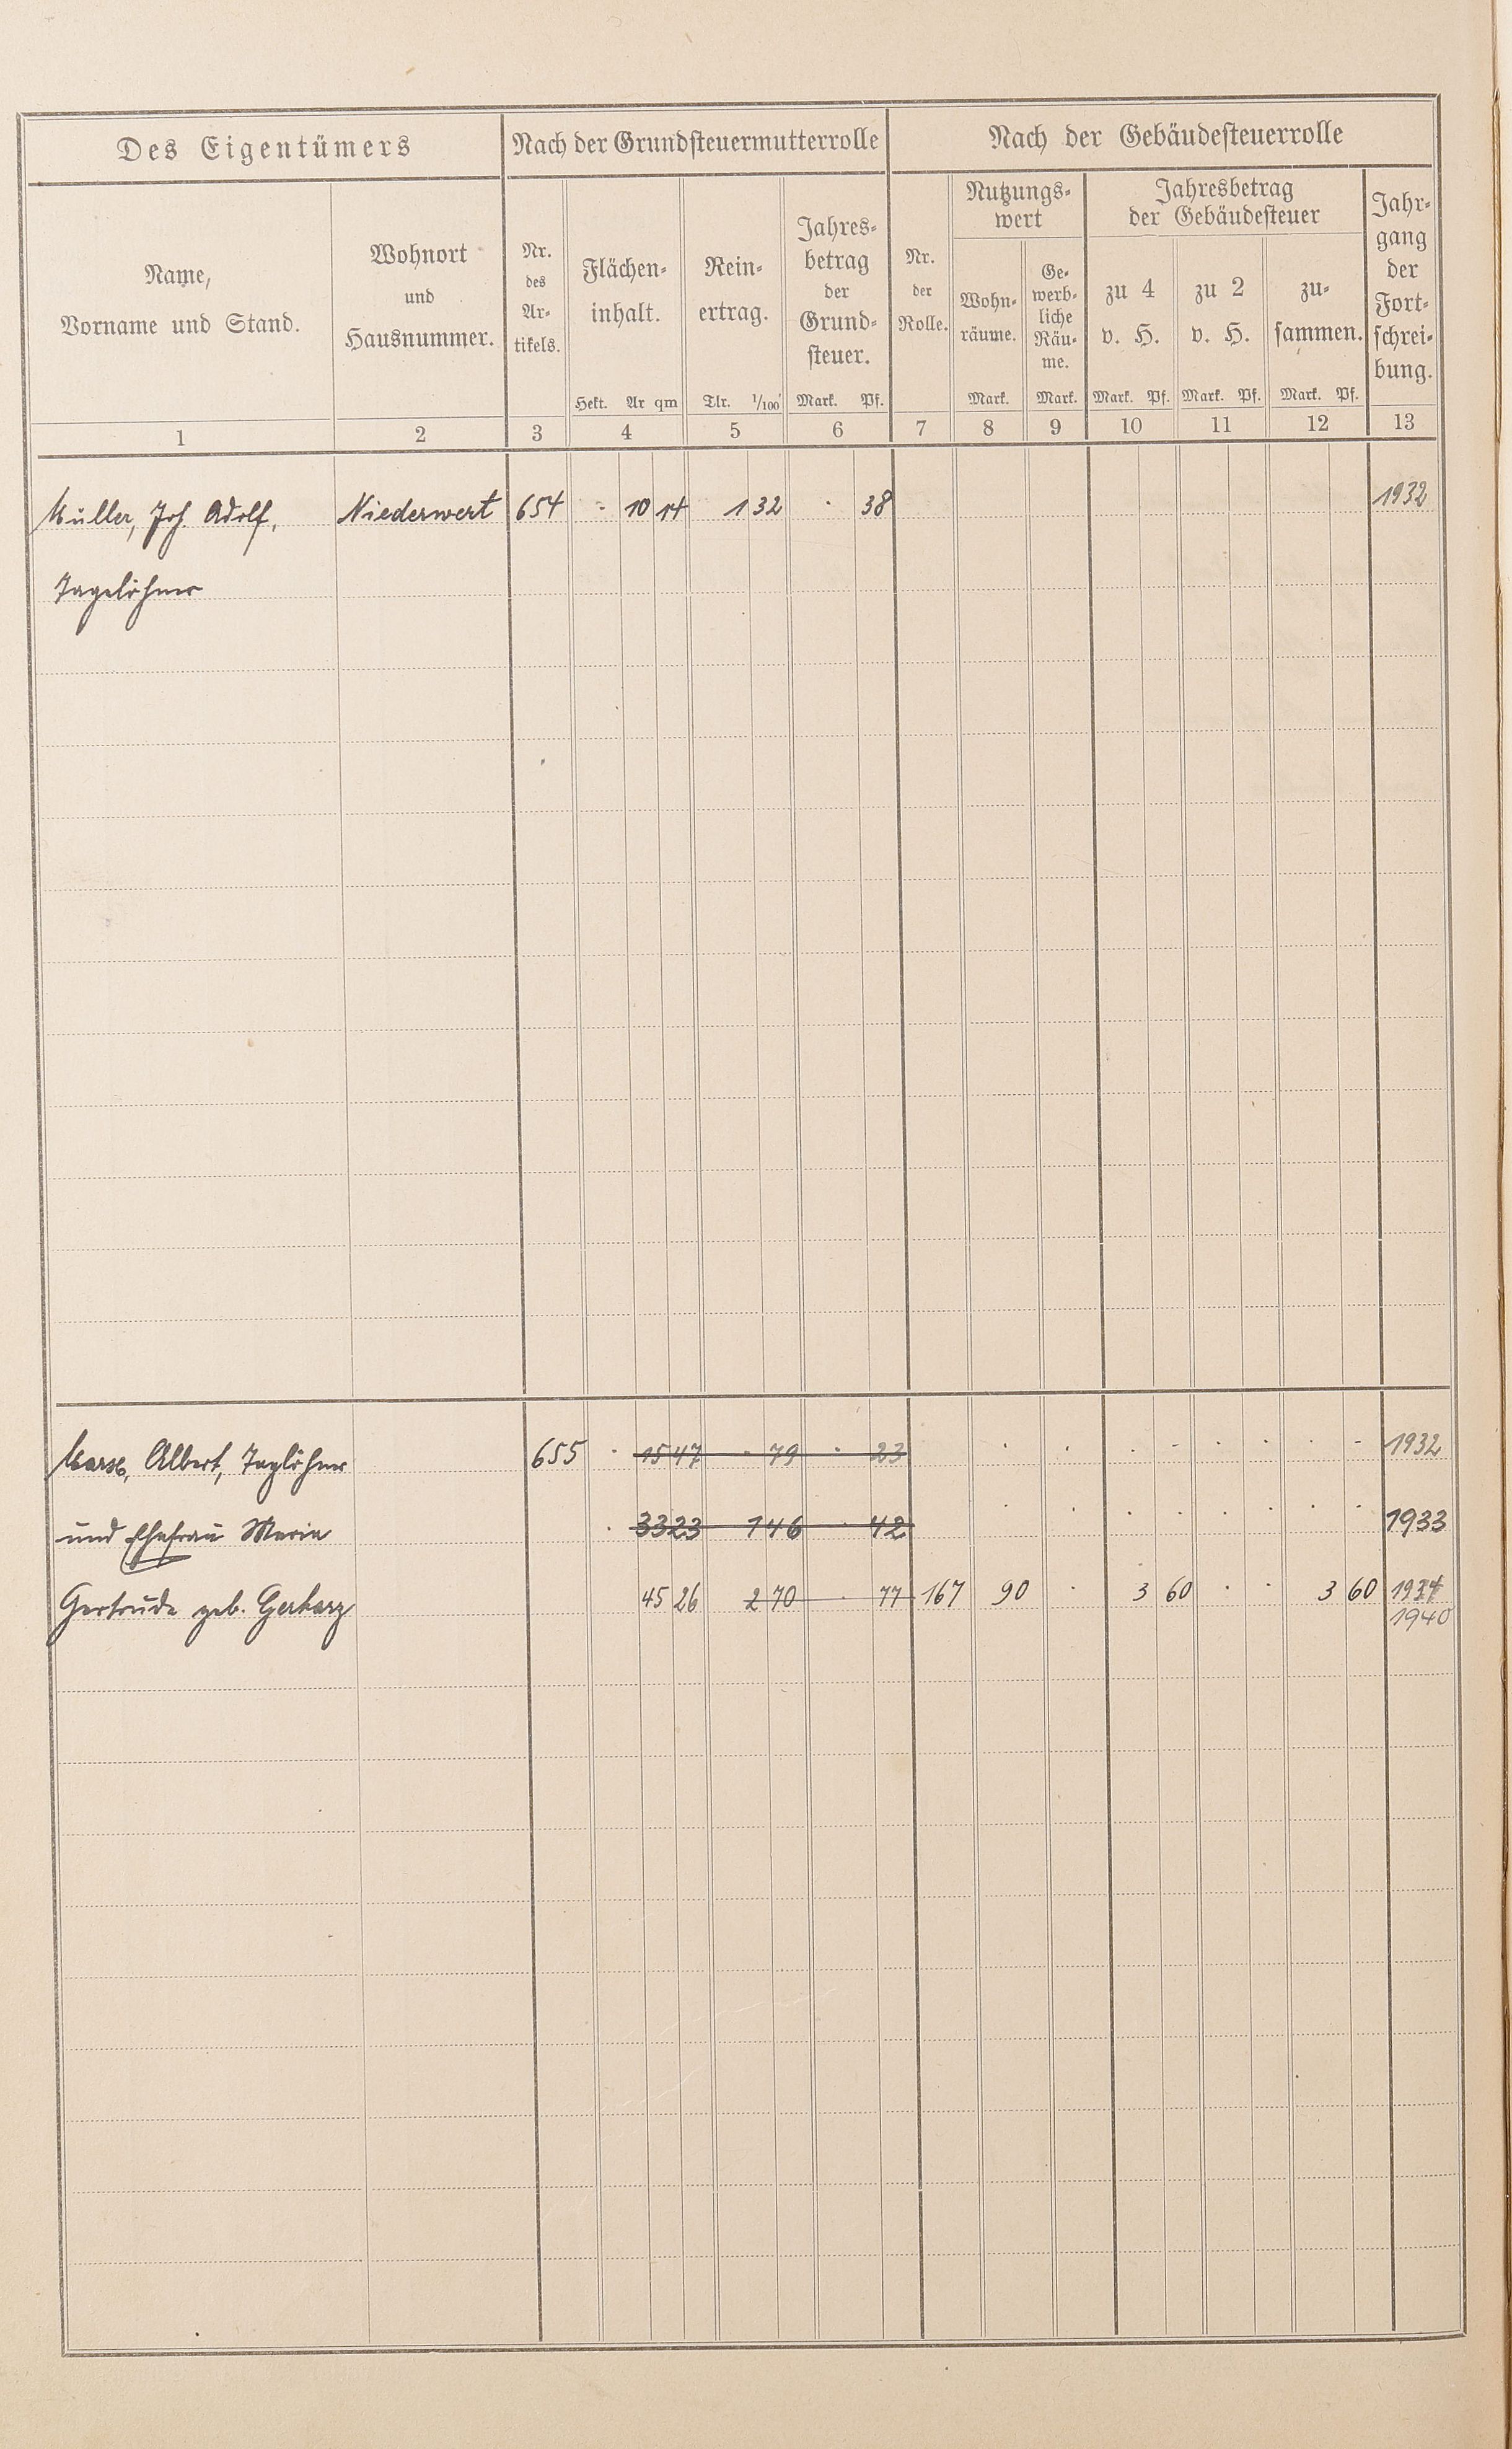 Des Eigentümers Nach der Grundsteuermutterrolle Nach der Gebäudesteuerrolle
Name,
Vorname und Stand.
Wohnort
und
Hausnummer.
Nr.
des
Ar-
tikels.
Flächen-
inhalt.
Hekt. Ar qm
Rein-
ertrag.
Tlr. 1/100
Jahres-
betrag
der
Grund-
steuer.
Mark. Pf.
Nr.
der
Rolle.
Nutzungs-
wert
Wohn-
räume.
Mark.
Ge-
werb-
liche
Räu-
me.
Mark.
Jahresbetrag
der Gebäudesteuer
zu 4
v. H.
Mark. Pf.
zu 2
v. H.
Mark. Pf.
zu-
sammen.
Mark. Pf.
Jahr-
gang
der
Fort-
schrei-
bung.
1 2 3 4 5 6 7 8 9 10 11 12 13
Müller, Joh. Adolf, Niederwert 654 - 10 14 1 32 · 38 1932
Tagelöhner
Albert, Taglöhner 655 · 15 47 · 79 · 23 · · · - · · · - 1932
und Ehefrau Maria · 33 23 1 46 · 42 · · · · · · · · 1933
Gertrude geb. Gerharz 45 26 2 70 · 77 167 90 · 3 60 · · 3 60
1940